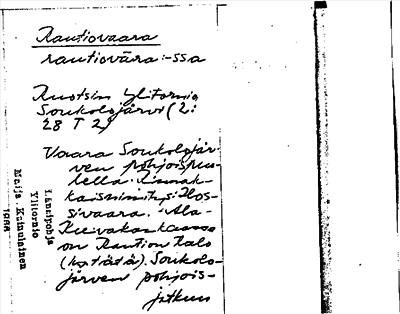 Rautiovaara
rautiovāra :-ssa
Ruotsin Ylitornio
Soukolojärvi (2:
28 T 2)
Vaara Soukolojär-
ven pohjoispuo-
lella. Rinnak-
kaisnimitys: Hos-
sivaara. Ala-
Kuivakankaassa
on Raution talo
(ks. tätä). Soukolo-
järven pohjois-
jatkuu
Länsipohja
Ylitornio
Maija Kainulainen
1966